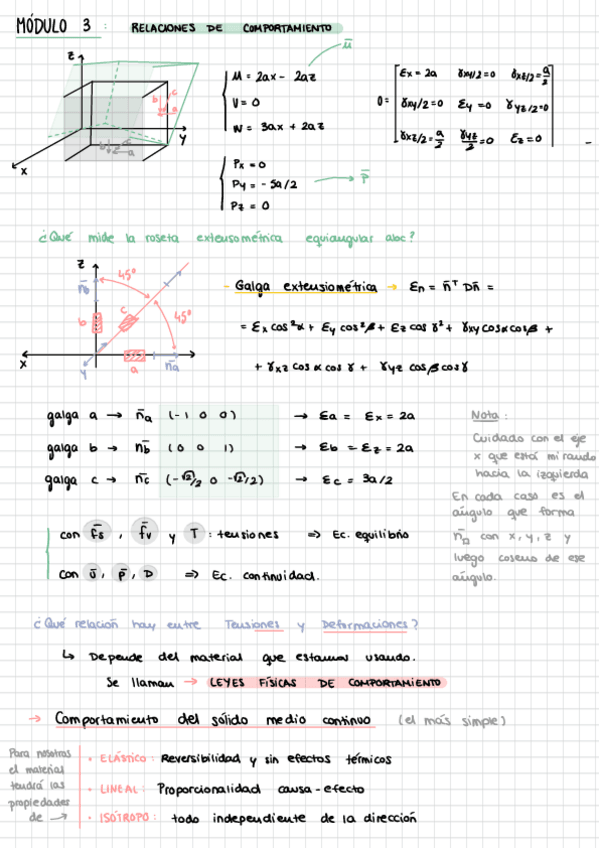 MÓDULO 3 : RELACIONES DE COMPORTAMIENTO
z
y
x
a
b
c
a
b
ū
u = 2ax - 2az
v = 0
w = 3ax + 2az
Px = 0
Py = - 5a/2
Pz = 0
p̄
D = [ εx = 2a γxy/2=0 γxz/2=a/2
γxy/2=0 εy=0 γyz/2=0
γxz/2=a/2 γyz/2=0 εz=0 ]
¿Qué mide la roseta extensométrica equiangular abc?
z
n̄b
45º
c
b
45º
x
y
a
n̄a
- Galga extensiométrica → εn = n̄ᵀ D n̄ =
= εx cos²α + εy cos²β + εz cos γ² + γxy cosα cosβ +
+ γxz cos α cos γ + γyz cosβ cosγ
galga a → n̄a (-1 0 0) → εa = εx = 2a
galga b → n̄b (0 0 1) → εb = εz = 2a
galga c → n̄c (-√2/2 0 -√2/2) → εc = 3a/2
Nota:
Cuidado con el eje
x que está mirando
hacia la izquierda
En cada caso es el
ángulo que forma
n̄□ con x, y, z y
luego coseno de ese
ángulo.
con f̄s , f̄v y T : tensiones ⇒ Ec. equilibrio
con ū, p̄, D ⇒ Ec. continuidad.
¿Qué relación hay entre Tensiones y Deformaciones?
↳ Depende del material que estamos usando.
Se llaman → LEYES FÍSICAS DE COMPORTAMIENTO
→ Comportamiento del sólido medio continuo (el más simple)
Para nosotros
el material
tendrá las
propiedades
de →
• ELÁSTICO: Reversibilidad y sin efectos térmicos
• LINEAL: Proporcionalidad causa-efecto
• ISÓTROPO: todo independiente de la dirección